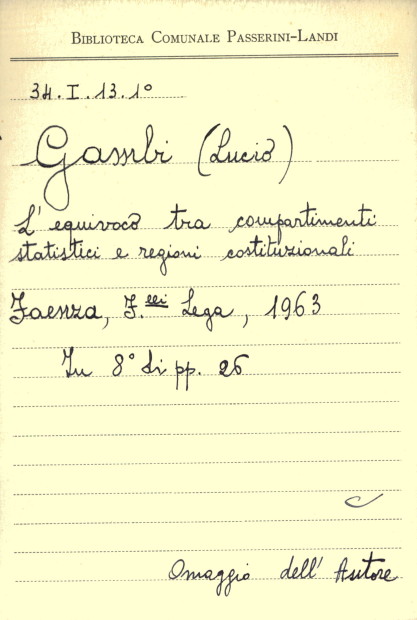 BIBLIOTECA COMUNALE PASSERINI-LANDI
34.I.13.1°
Gambi (Lucio)
L'equivoco tra compartimenti
statistici e regioni costituzionali
Faenza, F.lli Lega, 1963
In 8° di pp. 26
Omaggio dell'Autore